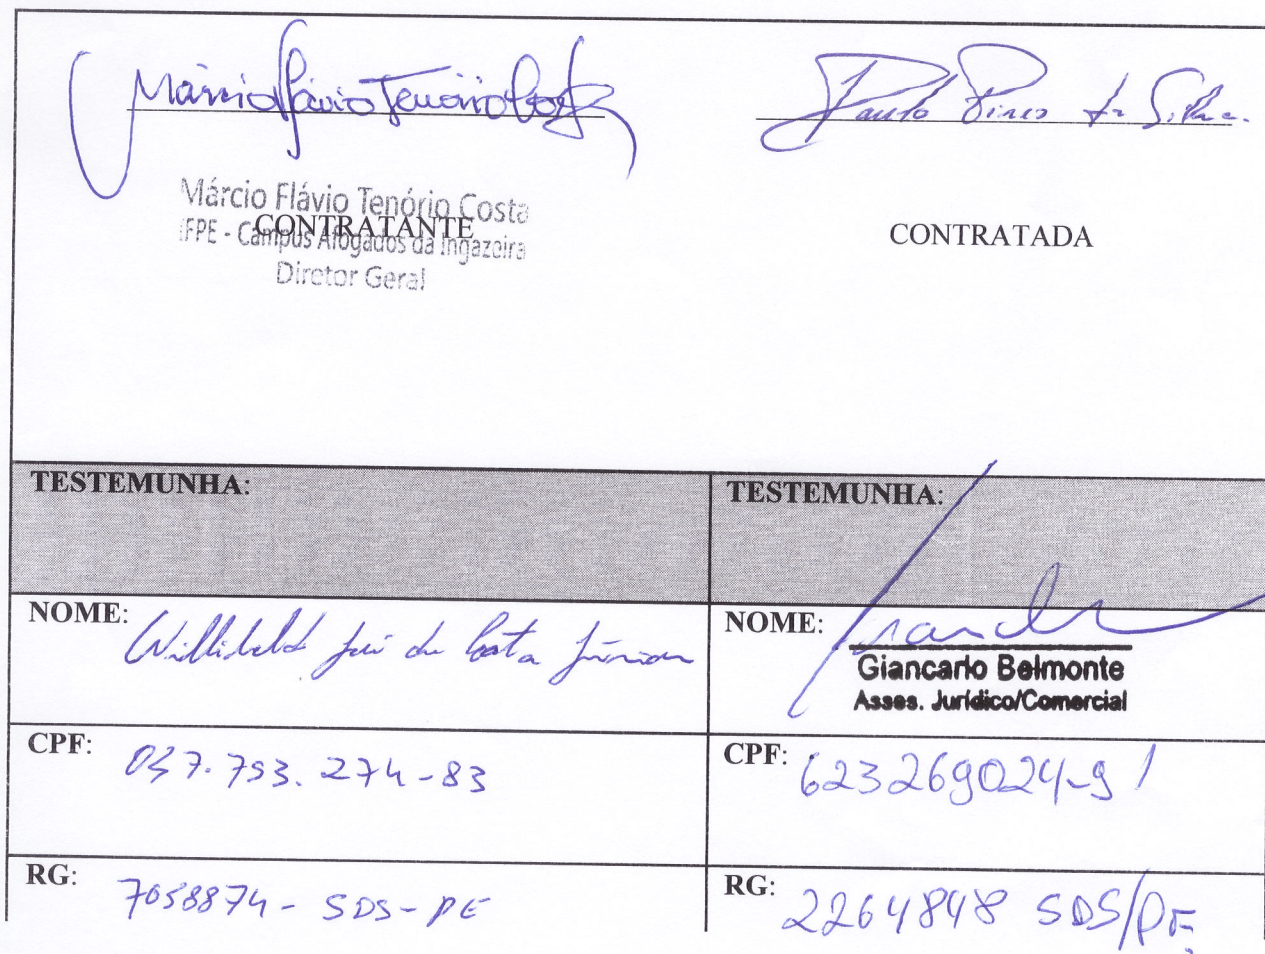 Márcio Flávio Tenório Costa
Paulo Pires da Silva
Márcio Flávio Tenório Costa
IFPE - Campus Afogados da Ingazeira
Diretor Geral
CONTRATANTE
CONTRATADA
TESTEMUNHA:
TESTEMUNHA:
NOME: José da Costa Júnior
NOME:
Giancarlo Belmonte
Asses. Jurídico/Comercial
CPF: 037.793.274-83
CPF: 623269024-91
RG: 7058874 - SDS - PE
RG: 2264848 SDS/PE